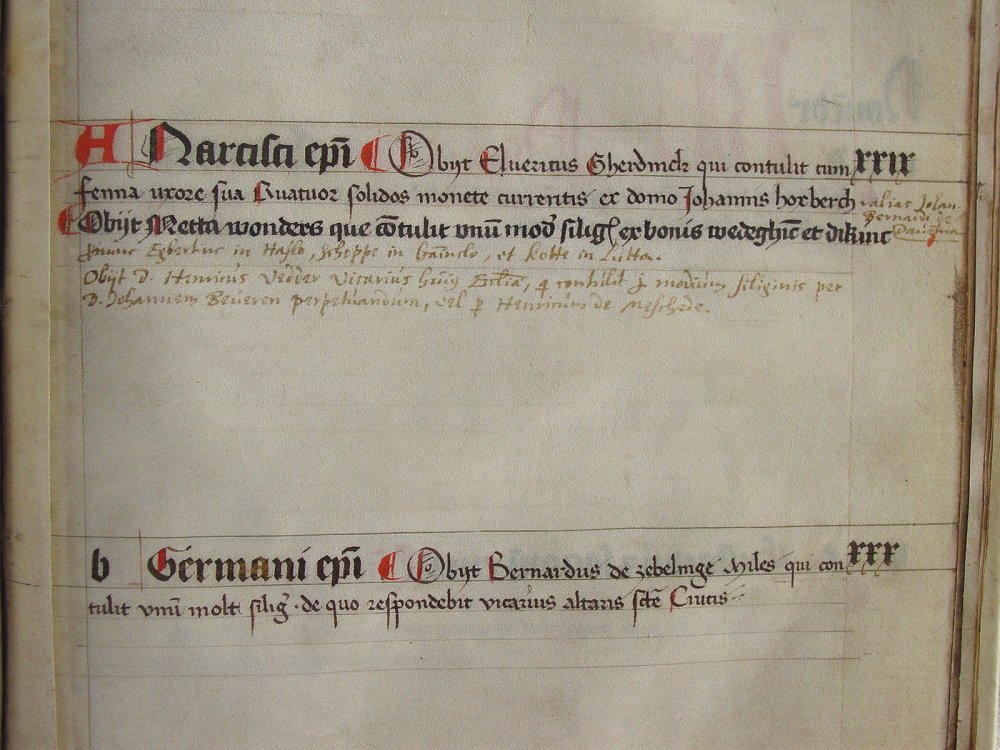 A Narcisci ep̄i Obijt Elvericus Gherdinck qui contulit cum xxix
fenna uxore sua Quatuor solidos monete currentis ex domo Johannis horberch alias Johan
Bernardi de
Obijt Metta wonders que cōtulit vnū mod siligꝭ ex bonis wedeghinc et dikinc
nunc Egbertus in Haslo, Scheppe in , et Kotte in Lutta.
Obijt D. Henricus Vedder vicarius huius Ecclīa, q contulit j modium siliginis per
D. Johannem Beveren perpetuandum, vel p Henricum de Meschede.
b Germani ep̄i Obijt Bernardus de zebelinge Miles qui con xxx
tulit vnū molt siliḡ · de quo respondebit vicarius altaris sctē Crucis